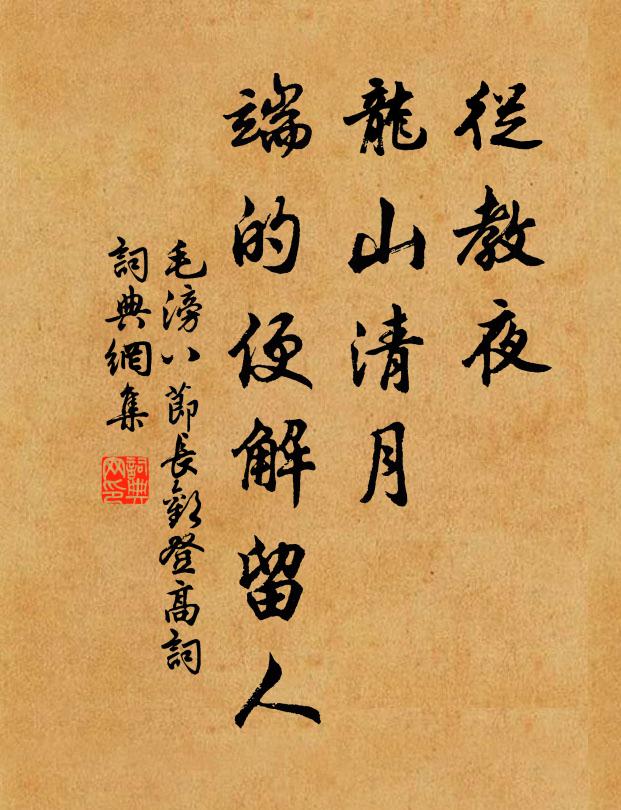 從教夜
龍山清月
端的便解留人
毛滂八節長歡登高詞
詞典網集
詞典
网印